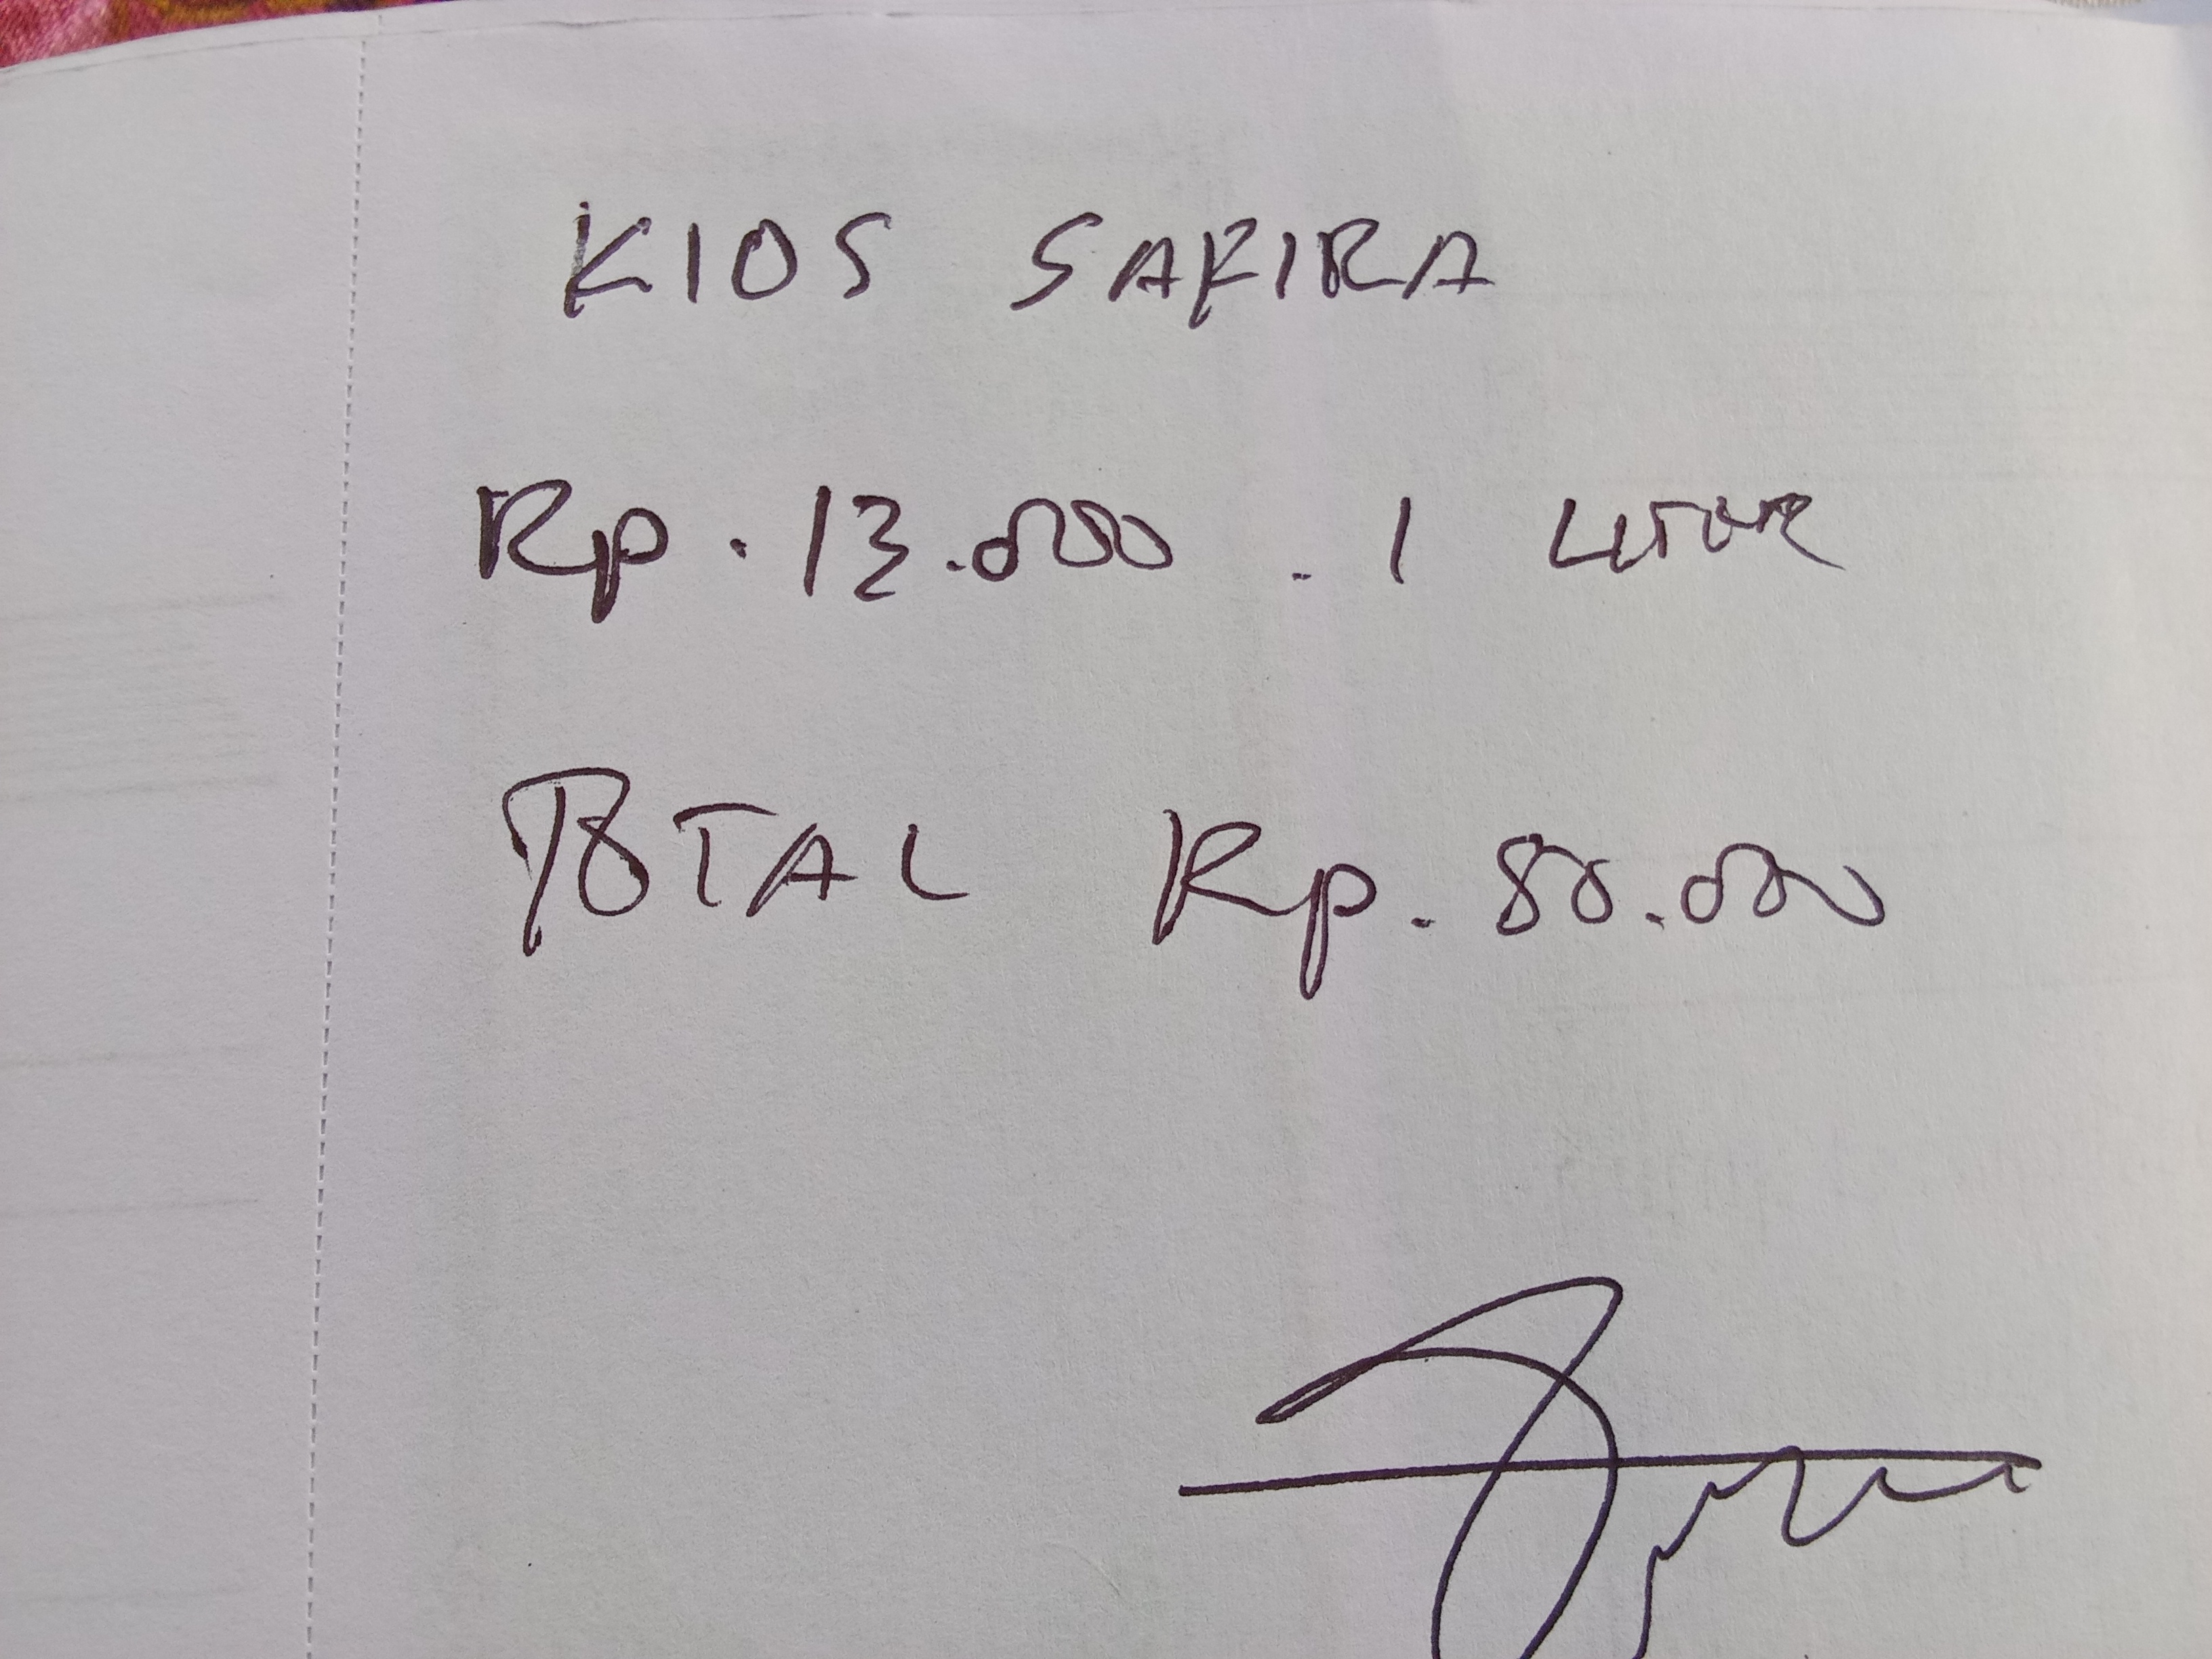 KIOS SAFIRA
Rp. 13.000 . 1 LITER
TOTAL Rp. 80.000